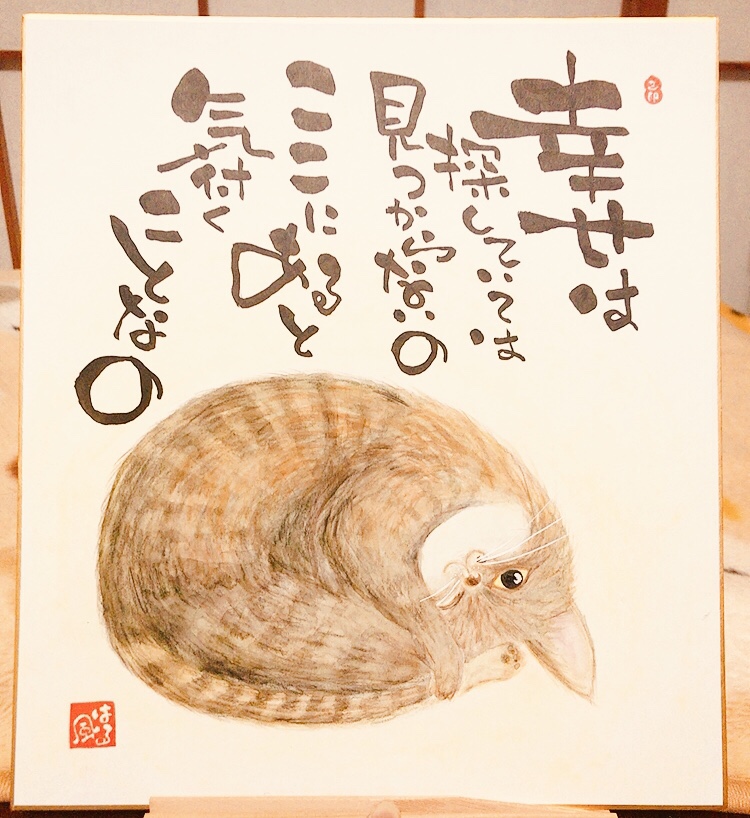 幸せは
探していては
見つからないの
ここに
あると
気付く
ことなの
はる風